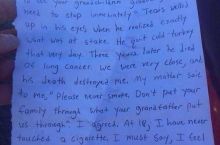 see your grand-children grow
need to stop immediately." Tears welled
up in his eyes when he realized exactly
what was at stake. He quit cold-turkey
that very day. Three years later he died
of lung cancer. We were very close, and
his death destroyed me. My mother said
to me, "Please never smoke. Don't put your
family through what your grandfather put
us through." I agreed. At 18, I have never
touched a cigarette. I must say, I feel